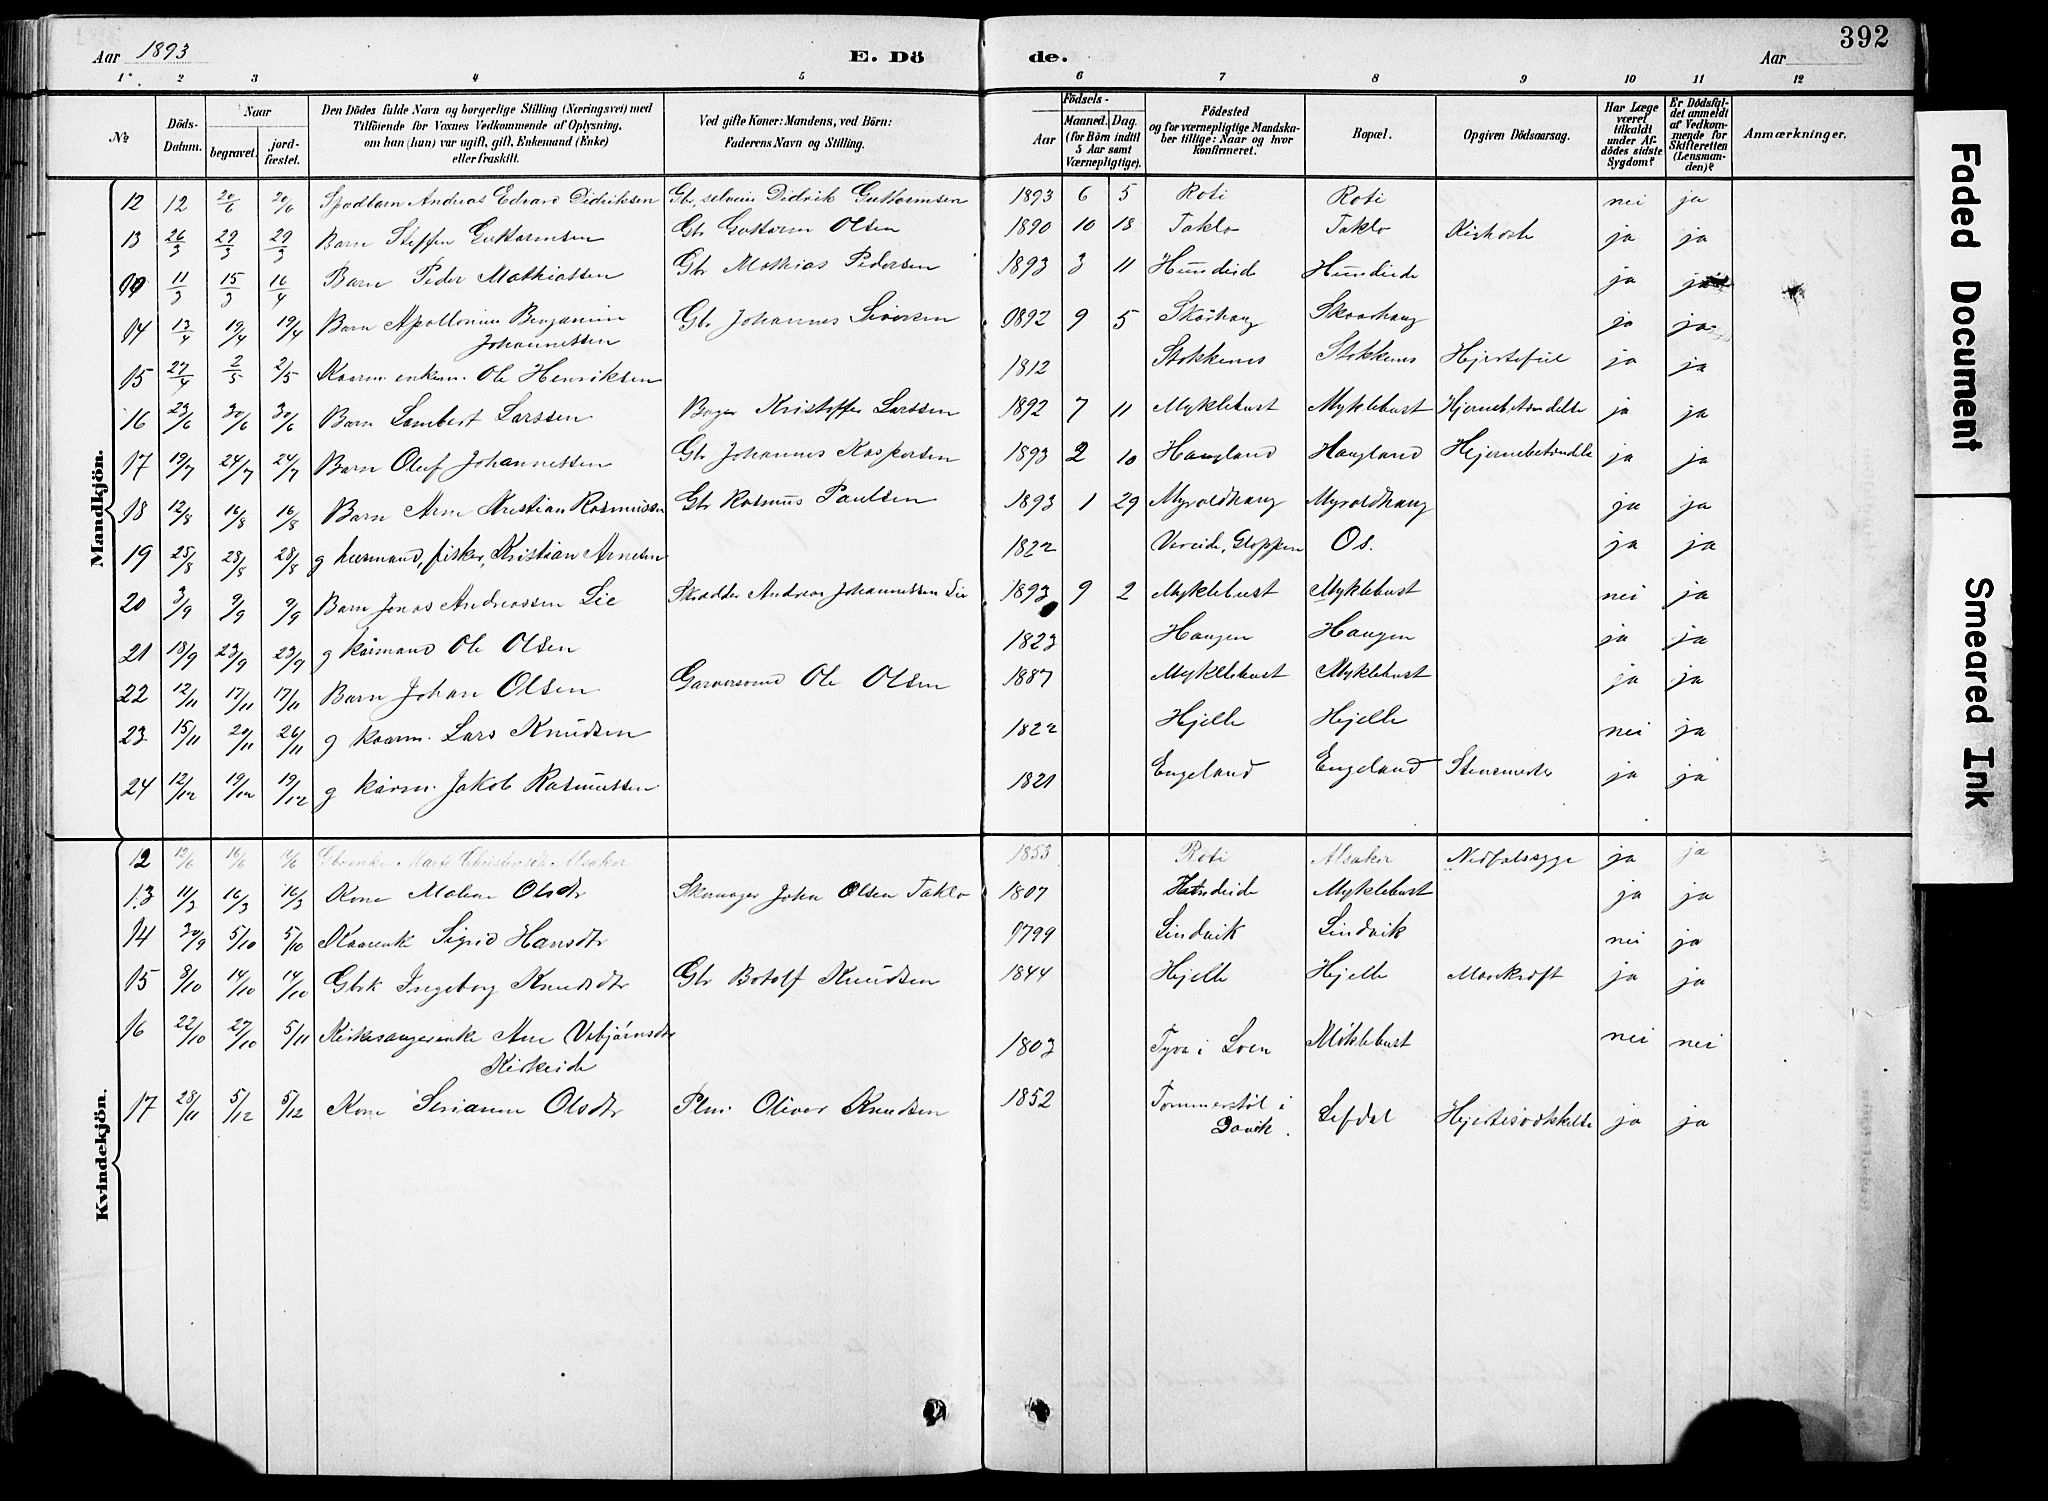 392
Aar 1893 E. Dö de. Aar
1 2 3 4 5 6 7 8 9 10 11 12
No
Döds-Datum.
Naar begravet. jordfæstet.
Den Dödes fulde Navn og borgerlige Stilling (Næringsvei) med Tilföiende for Voxnes Vedkommende af Oplysning, om han (hun) var ugift, gift, Enkemand (Enke) eller fraskilt.
Ved gifte Koner: Mandens, ved Börn: Faderens Navn og Stilling.
Födsels- Aar Maaned. Dag. (for Börn indtil 5 Aar samt Værnepligtige).
Födested og for værnepligtige Mandskaber tillige: Naar og hvor konfirmeret.
Bopæl.
Opgiven Dödsaarsag.
Har Læge været tilkaldt under Afdödes sidste Sygdom?
Er Dödsfaldet anmeldt af Vedkommende for Skifteretten (Lensmanden)?
Anmærkninger.
Mandkjön.
12 12 20/6 20/6 Spædbarn Andreas Edvard Didriksen Gbr, selveier Didrik Guttormsen 1893 6 5 Roti Roti nei ja
13 26/3 29/3 29/3 Barn Steffen Guttormsen Gbr Guttorm Olsen 1890 10 18 Taklo Taklo Kighoste ja ja
11/3 15/3 16/4 Barn Peder Mathiassen Gbr Mathias Pedersen 1893 3 11 Hundeide Hundeide ja ja
14 13/4 19/4 19/4 Barn Apollonius Benjamin Johannessen Gbr Johannes Siversen 1892 9 5 Skårhaug Skaarhaug ja ja
15 27/4 2/5 2/5 Kaarm. enkem. Ole Henriksen 1812 Stokkenes Stokkenes Hjertefeil ja ja
16 23/6 30/6 30/6 Barn Lambert Larssen Bager Kristoffer Larssen 1892 7 11 Myklebust Myklebust Hjernebetændelse ja ja
17 19/7 24/7 24/7 Barn Oluf Johannessen Gbr Johannes Kaspersen 1893 2 10 Haugland Haugland Hjernebetændelse ja ja
18 12/8 16/8 16/8 Barn Arne Kristian Rasmussen Gbr Rasmus Paulsen 1893 1 29 Myroldhaug Myroldhaug ja ja
19 25/8 28/8 28/8 g husmand, fisker, Kristian Arnesen 1822 Vereide, Gloppen Os. ja ja
20 3/9 9/9 9/9 Barn Jonas Andreassen Lie Skrædder Andreas Johannessen Lie 1893 9 2 Myklebust Myklebust nei ja
21 18/9 23/9 23/9 g kårmand Ole Olsen 1823 Haugen Haugen ja ja
22 12/11 17/11 17/11 Barn Johan Olsen Garversvend Ole Olsen 1887 Myklebust Myklebust ja ja
23 15/11 20/11 26/11 g kaarm. Lars Knudsen 1822 Hjelle Hjelle nei ja
24 12/12 19/12 19/12 g kårm. Jakob Rasmussen 1821 Engeland Engeland Stensmerter ja ja
Kvindekjön.
12 12/6 16/6 16/6 Gbrenke Marte Alsaker 1853 Roti Alsaker Nedfalssyge ja ja
13 11/3 16/3 16/3 Kone Malene Olsdtr Skomager John Olsen Taklo 1807 Hundeide Myklebust ja ja
14 30/9 5/10 5/10 Kaarenk Sigrid Hansdtr 1799 Lindvik Lindvik nei ja
15 8/10 14/10 14/10 Gbrk Ingeborg Knudsdtr Gbr Botolf Knudsen 1844 Hjelle Hjelle Mavekræft ja ja
16 22/10 27/10 5/11 Kirkesangerenke Ane Vebjørnsdtr Kirkeide 1803 Tyva i Loen Miklebust nei nei
17 28/11 5/12 5/12 Kone Serianne Olsdtr Plm. Oliver Knudsen 1852 Tommerstøl i Davik. Lefdal ja ja
Faded Document
Smeared Ink